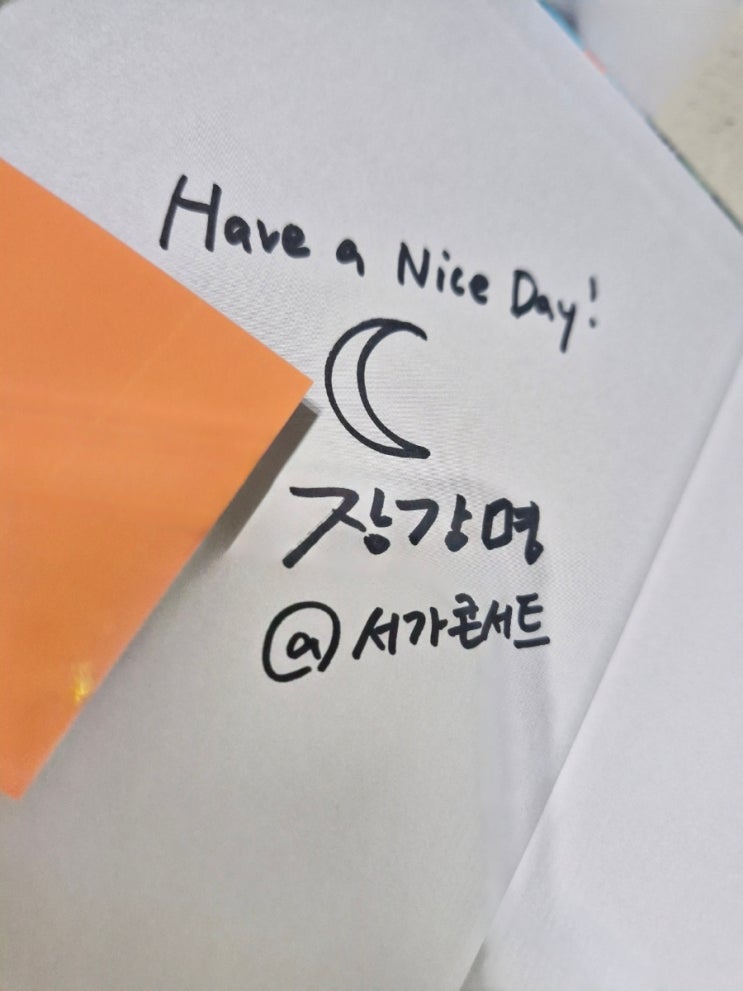 Have a Nice Day!
장강명
@ 서가콘서트